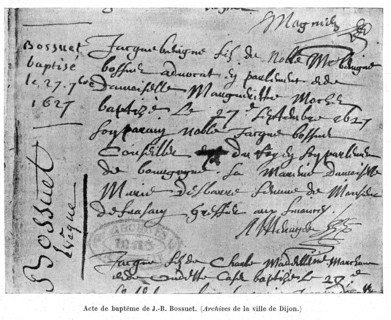 Magnien
Bossuet
baptisé
le 27. 7bre
1627
Bossuet
Evêque
Jacque benigne fils de noble Me benigne
bossuet advocat en parlement et de
damoiselle Margueritte Mochet
baptizé Le 27 Septembre 1627
son parain noble Jacque bossuet
Conseiller du Roy en son parlement
de bourgongne. La Maraine damoiselle
Marie femme de Monsieur
Jacque fils de Charle
baptizé le 27
ARCHIVES
Acte de baptême de J.-B. Bossuet. (Archives de la ville de Dijon.)